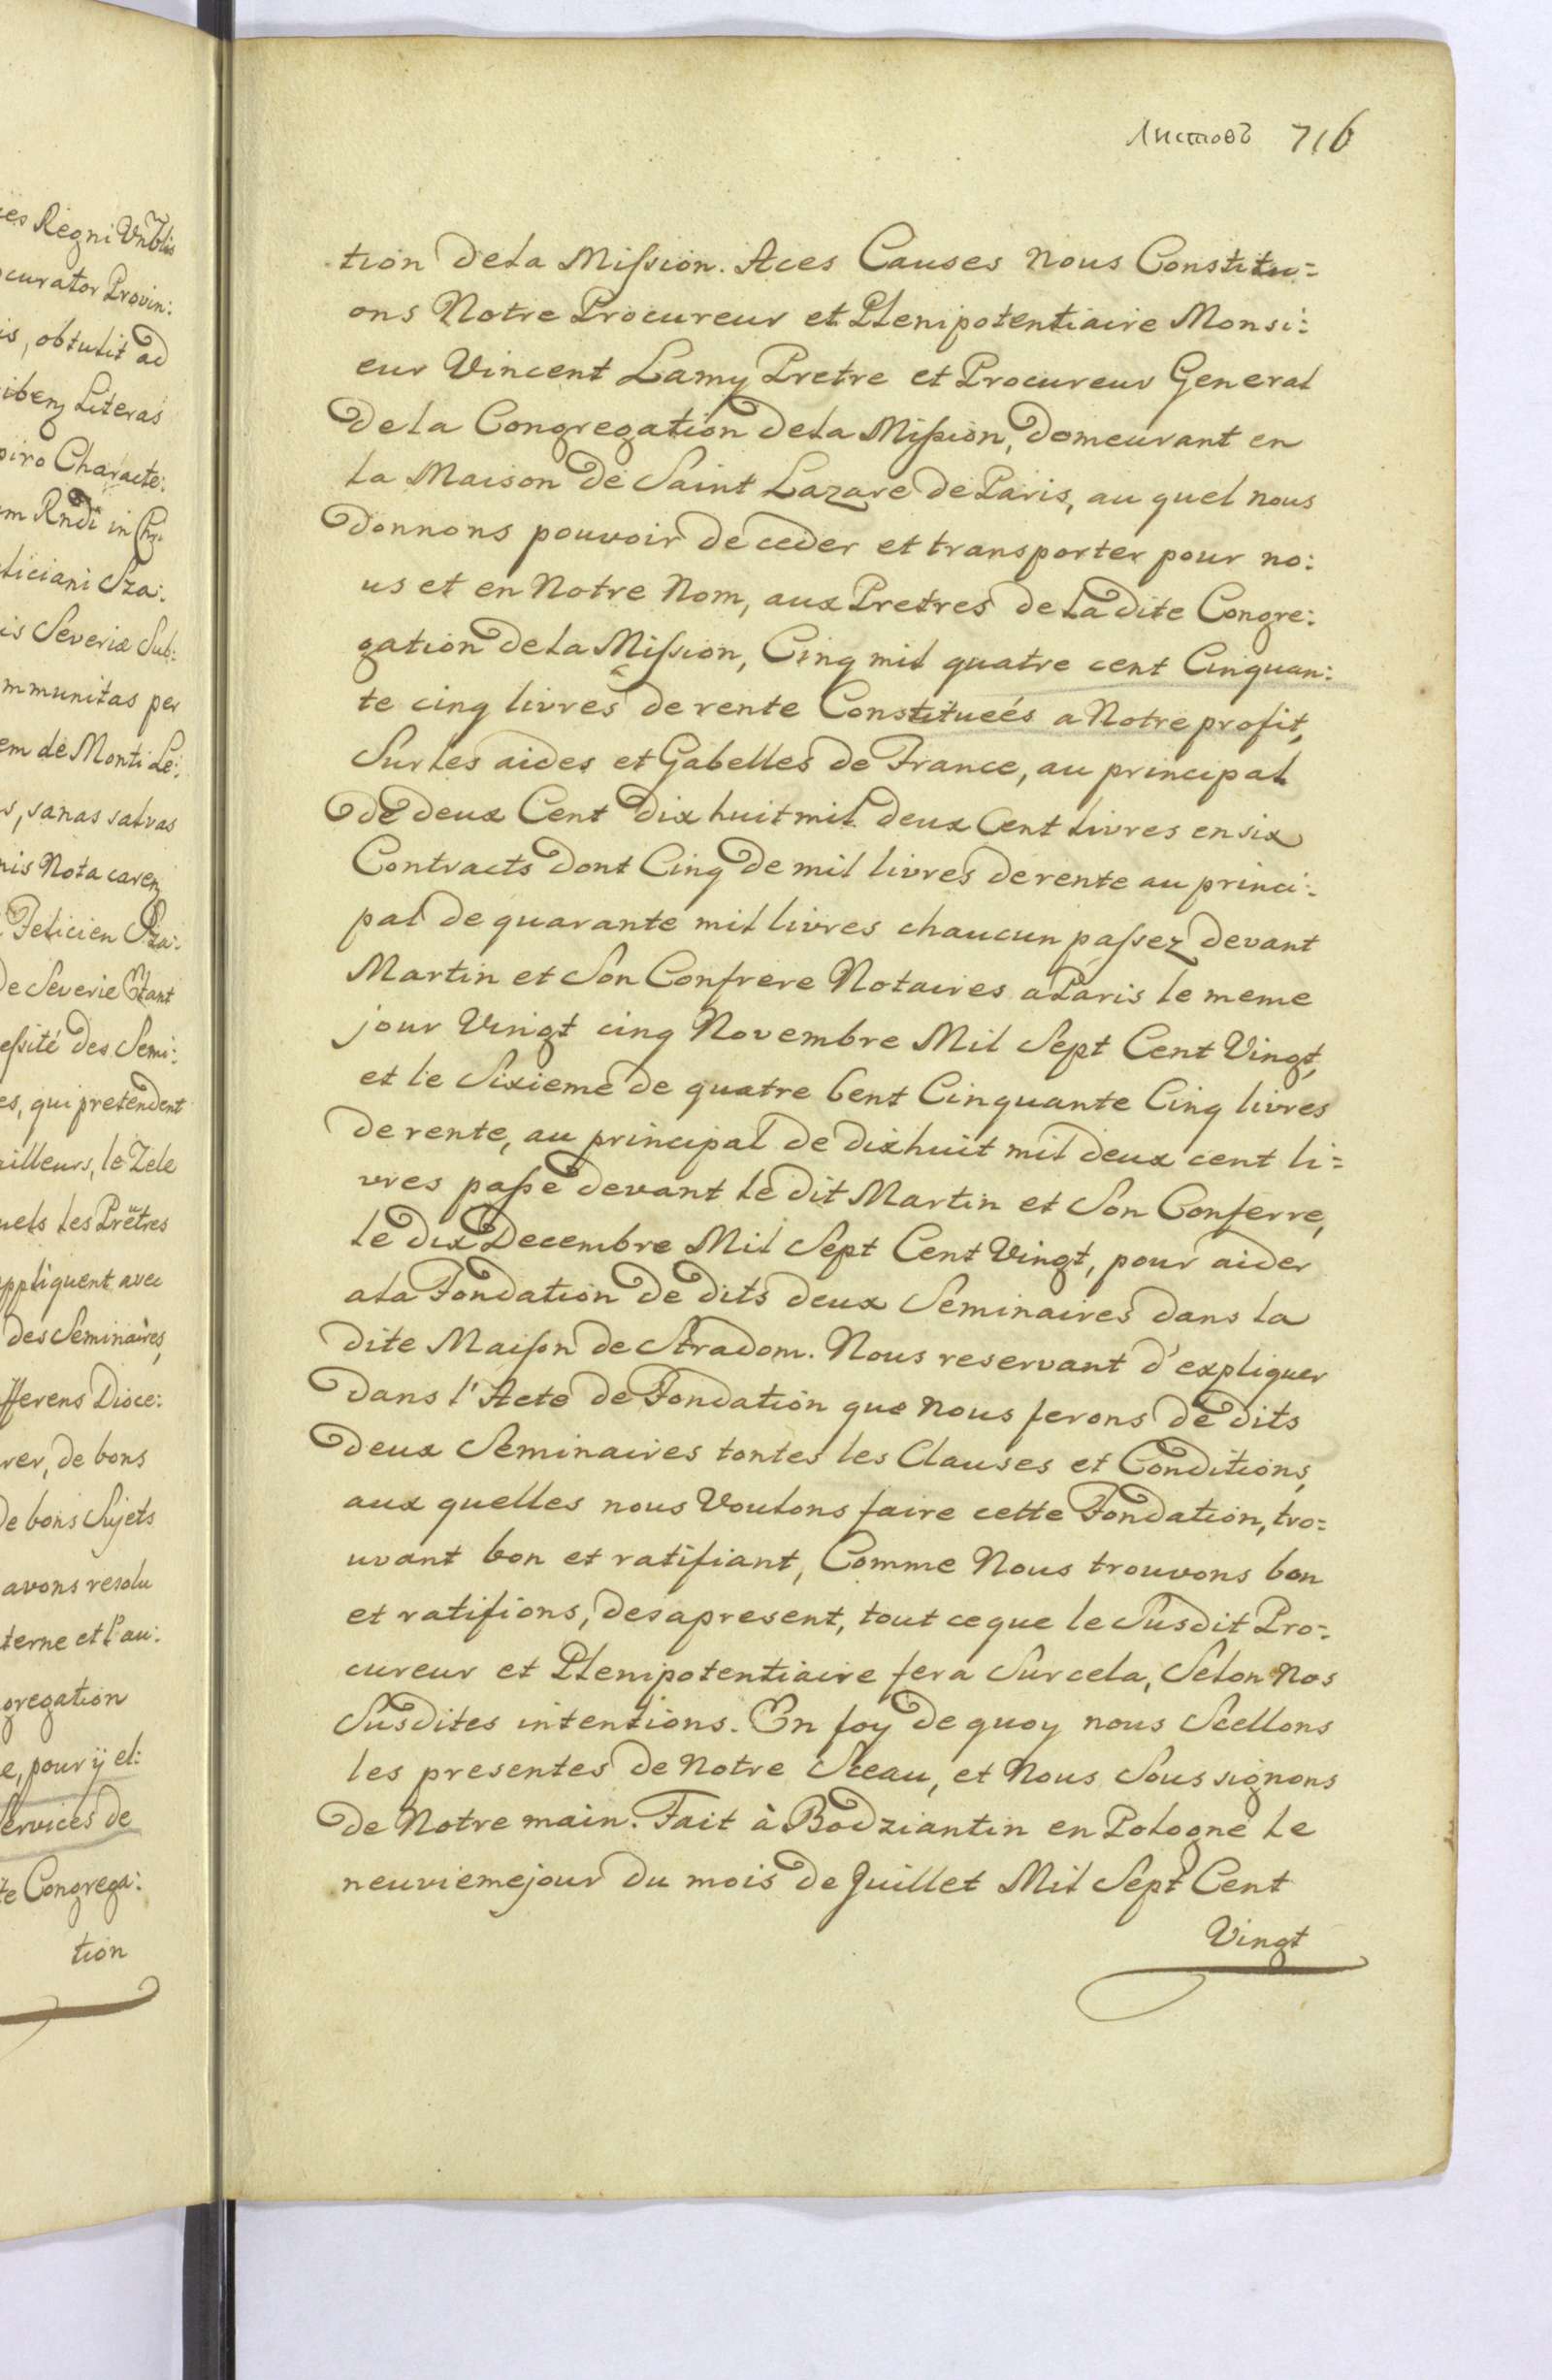 Листовъ 716
tion dela Mission. Aces Causes nous Constitu=
ons Notre Procureur et Plenipotentiaire Monsi:
eur Vincent Lamy Pretre et Procureur General
dela Congregation dela Mission, domeurant en
la Maison de Saint Lazare de Paris, au quel nous
donnons pouvoir de ceder et transporter pour no:
us et en Notre Nom, aux Pretres de la dite Congre:
gation dela Mission, Cinq mil quatre cent Cinquan:
te cinq livres de rente Constitueés a Notre profit,
Sur les aides et Gabelles de France, au principal
de deux Cent dix huit mil deux Cent livres en six
Contracts dont Cinq de mil livres de rente au princi:
pal de quarante mil livres chaucun passez devant
Martin et Son Confrere Notaires a Paris le meme
jour Vingt cinq Novembre Mil Sept Cent Vingt,
et le Sixieme de quatre Cent Cinquante Cinq livres
de rente, au principal de dixhuit mil deux cent li=
vres passé devant le dit Martin et Son Conferre,
le dix Decembre Mil Sept Cent Vingt, pour aider
ala Fondation de dits deux Seminaires dans la
dite Maison de Stradom. Nous reservant d'expliquer
dans l'Acte de Fondation que nous ferons de dits
deux Seminaires tontes les Clauses et Conditions,
aux quelles nous Voulons faire cette Fondation, tro=
uvant bon et ratifiant, Comme Nous trouvons bon
et ratifions, des apresent, tout ce que le Susdit Pro=
cureur et Plenipotentiaire fera Sur cela, Selon Nos
Susdites intentions. En foy de quoy nous Scellons
les presentes de Notre Sceau, et Nous Sous signons
de Notre main. Fait à Bodziantin en Pologne le
neuvieme jour du mois de Juillet Mil Sept Cent
Vingt
Regni
curator Provin:
is, obtulit ad
Literas
Characte:
Rndi in
liciani Sza:
is Severiæ Sub:
mmunitas per
em de Monti Le:
s, sanas salvas
nis Nota
Felicien Sza:
de Severie Etant
essité des Semi:
es, qui pretendent
ailleurs, le Zele
uels les Prêtres
appliquent avec
des Seminaires,
fferens Dioce:
ver, de bons
de bons Sujets
avons resolu
terne et l'au:
gregation
e, pour ÿ et:
Services de
te Congrega:
tion